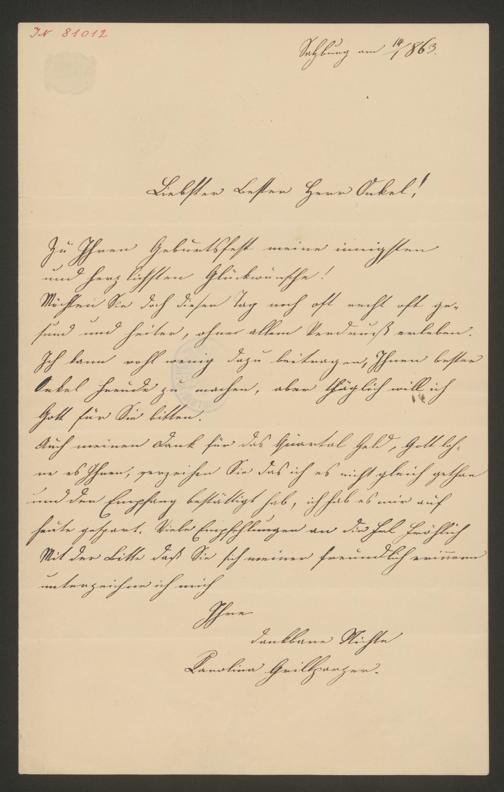 JN 81012
Salzburg am 14/1 863.
Liebster bester Herr Onkel!
Zu Ihrem Geburtsfest meine innigsten
und herzlichsten Glückwünsche!
Möchten Sie doch diesen Tag noch oft recht oft ge-
sund und heiter, ohne allem Verdruß erleben.
Ich kann wohl wenig dazu beitragen, Ihnen bester
Onkel Freude zu machen, aber täglich will ich
Gott für Sie bitten.
Auch meinen Dank für das Quartal Geld, Gott loh-
ne es Ihnen, verzeihen Sie das ich es nicht gleich gethan
und den Empfang bestättigt hab, ich hab es mir auf
heute gespart. Viele Empfehlungen an die Frl Fröhlich
Mit der Bitte daß Sie sich meiner freundlich erinnern
unterzeichne ich mich
Ihre
dankbare Nichte
Karolina Grillparzer.